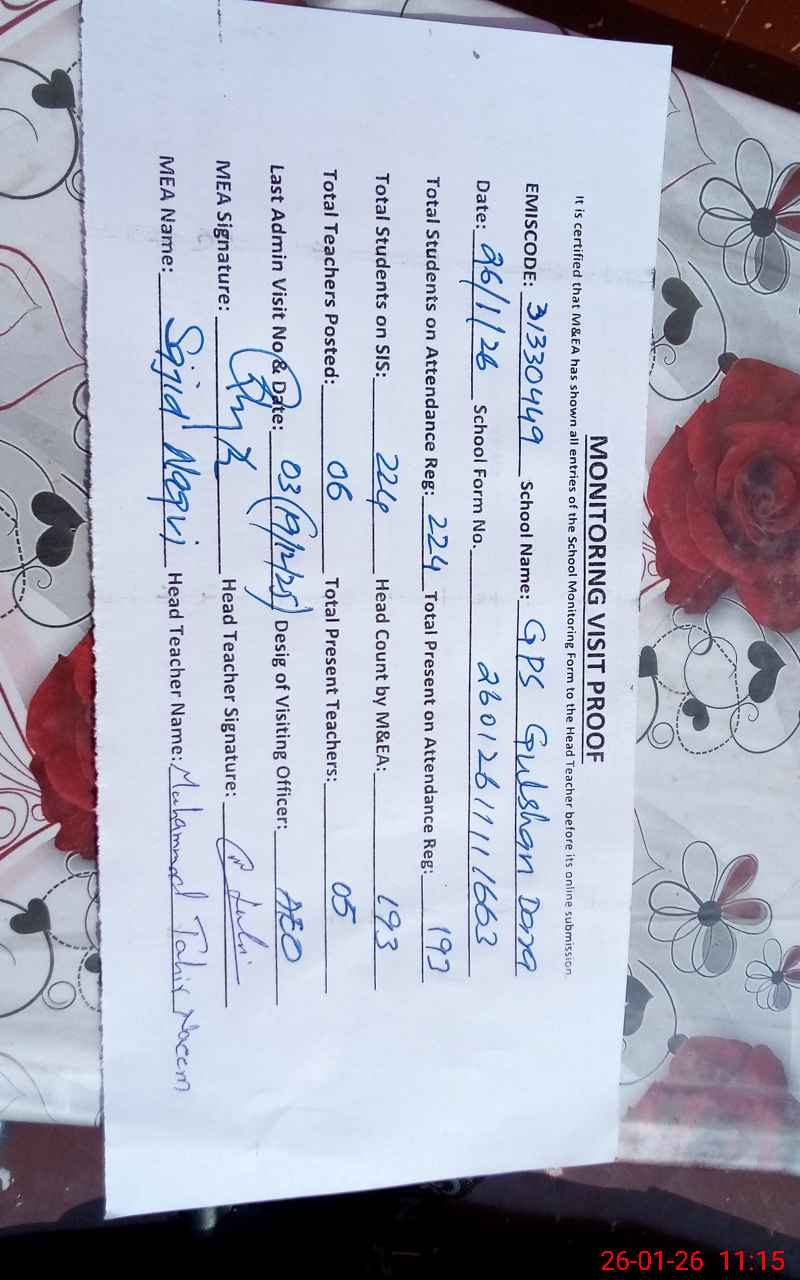 MONITORING VISIT PROOF
It is certified that M&EA has shown all entries of the School Monitoring Form to the Head Teacher before its online submission.
EMISCODE: 31330449 School Name: GPS Gulshan Dona
Date: 26/1/26 School Form No. 26012611111663
Total Students on Attendance Reg: 224 Total Present on Attendance Reg: 193
Total Students on SIS: 224 Head Count by M&EA: 193
Total Teachers Posted: 06 Total Present Teachers: 05
Last Admin Visit No & Date: 03 (19/12/25) Desig of Visiting Officer: AEO
MEA Signature: Head Teacher Signature:
MEA Name: Sajid Naqvi Head Teacher Name: Muhammad Tahir Naeem
26-01-26 11:15